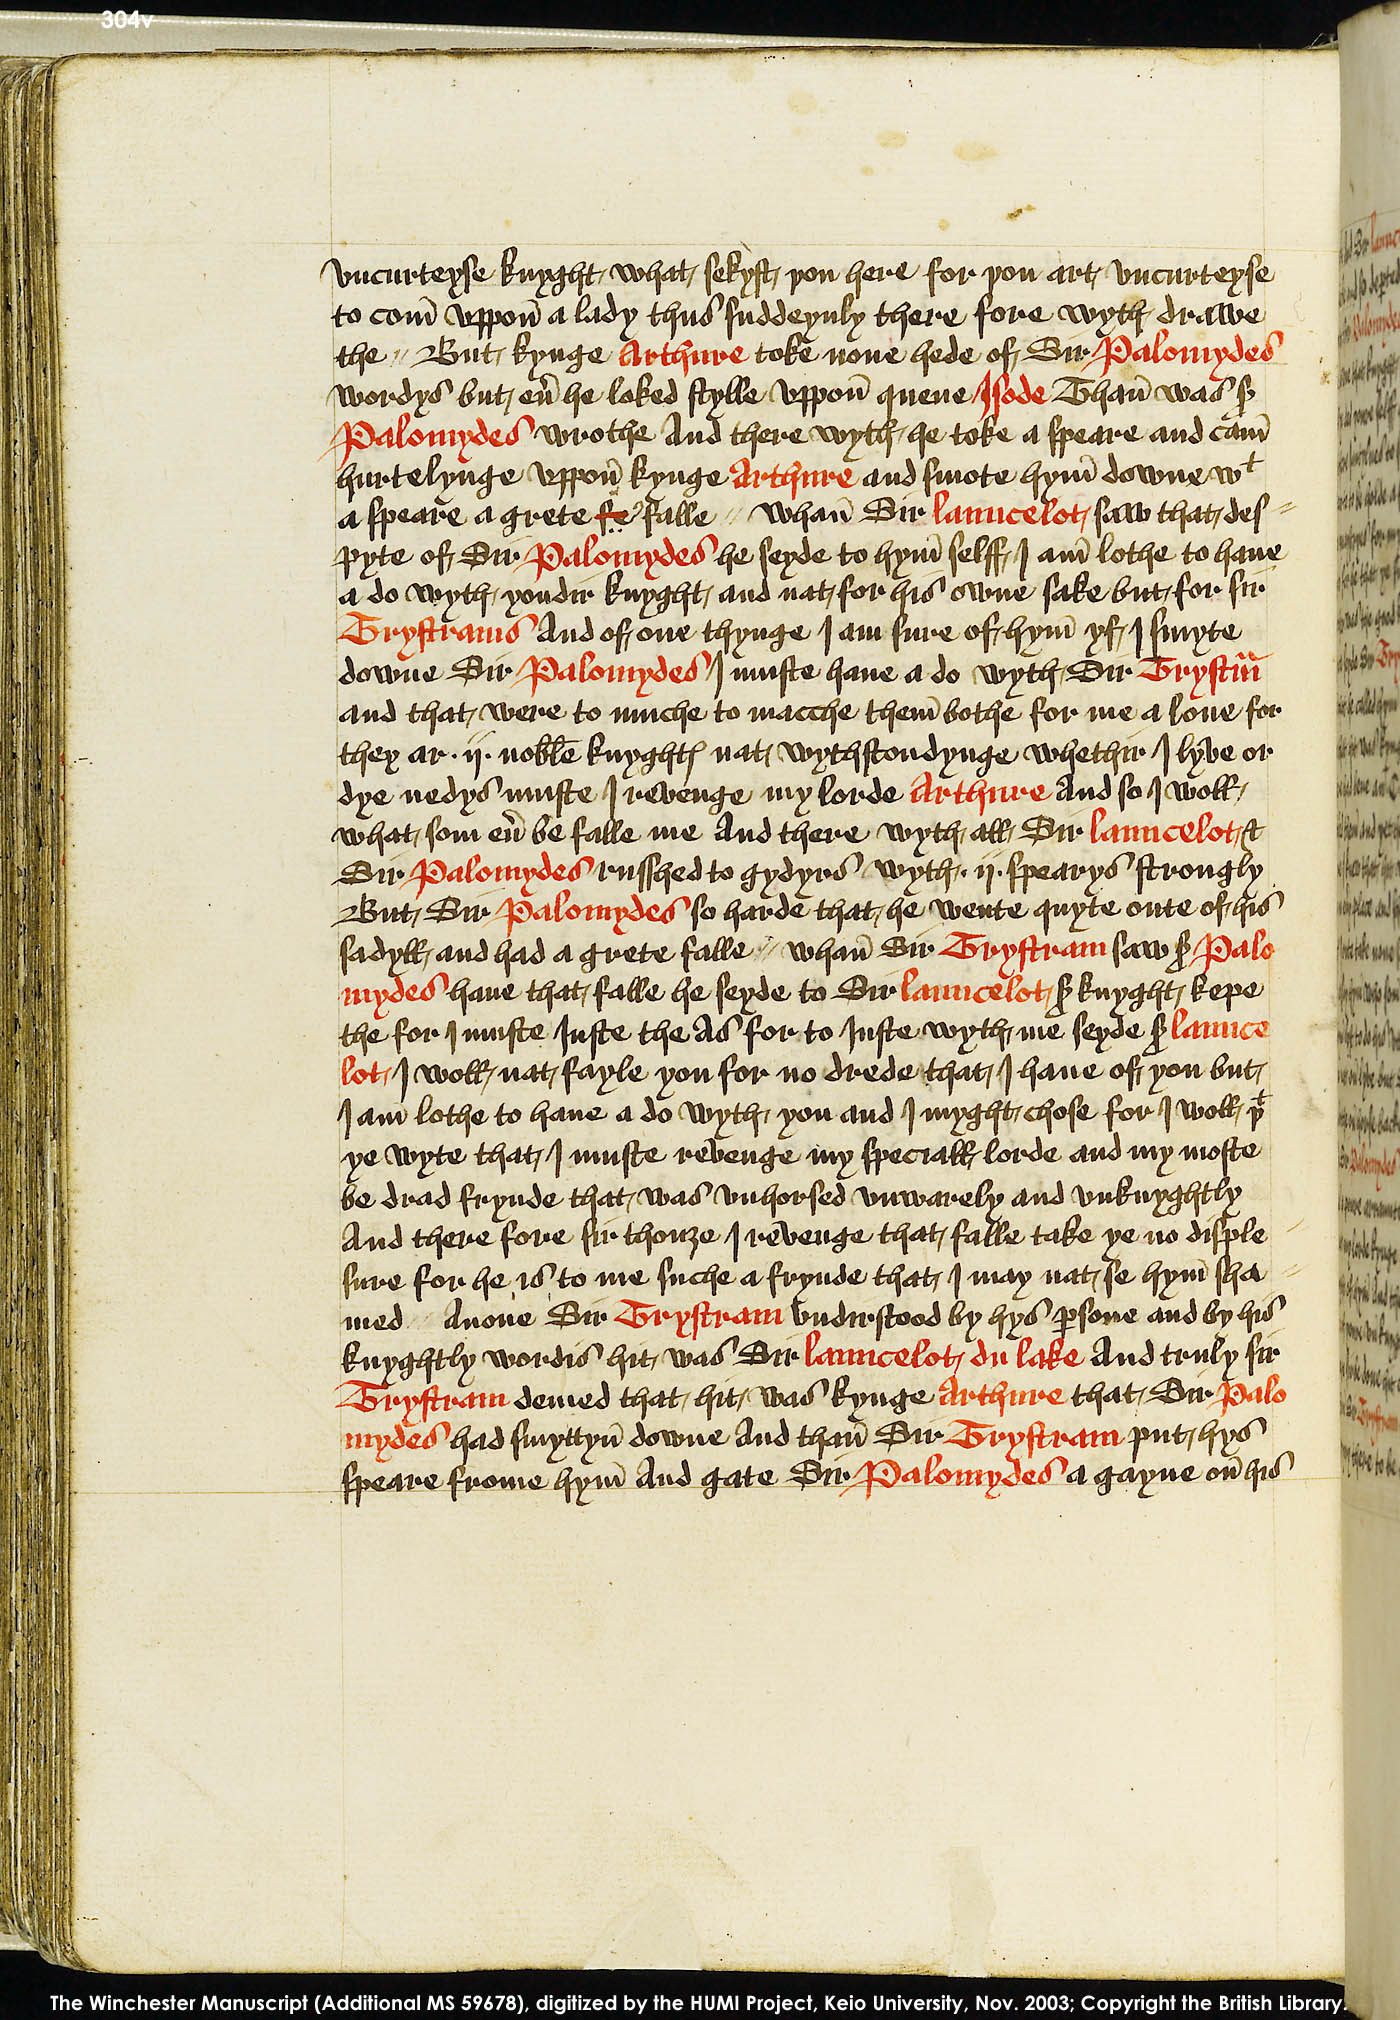 304v
vncurteyse knyght what sekyst you here for you art vncurteyse
to com̄ vppon̄ a lady thus suddeynly there fore wyth drawe
the // But kynge Arthure toke none hede of Sir Palomydes
wordys but eū he loked stylle vppon̄ quene Isode Than̄ was sʳ
Palomydes wrothe And there wyth he toke a speare and cam̄
hurtelynge vppon̄ kynge Arthure and smote hym̄ downe wᵗ
a speare a grete fe falle // whan̄ Sir launcelot saw that des=
pyte of Sir Palomydes he seyde to hym̄ selff I am̄ lothe to haue
a do wyth yondir knyght and nat for his owne sake but for sir
Trystrams And of one thynge I am sure of hym̄ yf I smyte
downe Sir Palomydes I muste haue a do wyth Sir Trystrm̄
and that were to muche to macche them̄ bothe for me a lone for
they ar ·ij· noble knyghtꝭ nat wythstondynge whethir I lyve or
dye nedys muste I revenge my lorde Arthure And so I woll
what som eū be falle me And there wyth all Sir launcelot &
Sir Palomydes russhed to gydyrs wyth ·ij· spearys strongly
But Sir Palomydes so harde that he wente quyte oute of his
sadyll and had a grete falle // whan̄ Sir Trystram saw sʳ Palo
mydes haue that falle he seyde to Sir launcelot sʳ knyght kepe
the for I muste Iuste the As for to Iuste wyth me seyde sʳ launce
lot I woll nat fayle you for no drede that I haue of you but
I am lothe to haue a do wyth you and I myght chose for I woll þᵗ
ye wyte that I muste revenge my speciall lorde and my moste
be drad frynde that was vnhorsed vnwarely and vnknyghtly
And there fore sir thouze I revenge that falle take ye no disple
sure for he is to me suche a frynde that I may nat se hym̄ sha=
med // Anone Sir Trystram vndirstood by hys ꝑsone and by his
knyghtly wordis hit was Sir launcelot du lake And truly sir
Trystram demed that hit was kynge Arthure that Sir Palo
mydes had smyttyn̄ downe And than̄ Sir Trystram put hys
speare frome hym̄ And gate Sir Palomydes a gayne on̄ his
The Winchester Manuscript (Additional MS 59678), digitized by the HUMI Project, Keio University, Nov. 2003; Copyright the British Library.